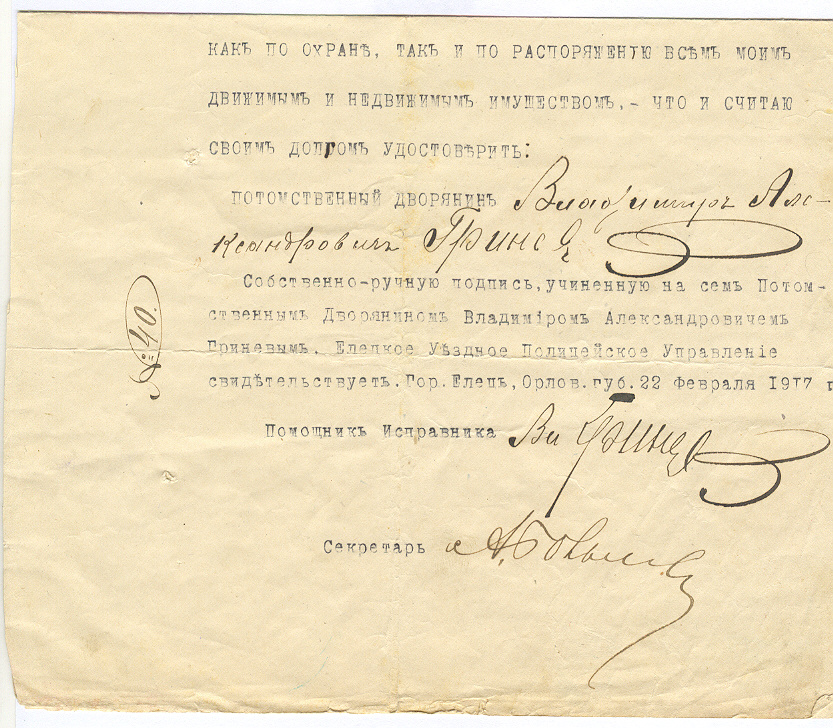 КАКЪ ПО ОХРАНѢ, ТАКЪ И ПО РАСПОРЯЖЕНIЮ ВСѢМЪ МОИМЪ
ДВИЖИМЫМЪ И НЕДВИЖИМЫМЪ ИМУЩЕСТВОМЪ,- ЧТО И СЧИТАЮ
СВОИМЪ ДОЛГОМЪ УДОСТОВѢРИТЬ:
ПОТОМСТВЕННЫЙ ДВОРЯНИНЪ Владимiръ Але-
ксандровичъ Гриневъ
Собственно-ручную подпись, учиненную на семъ Потом-
ственнымъ Дворяниномъ Владимiромъ Александровичемъ
Гриневымъ, Елецкое Уѣздное Полицейское Управленiе
свидѣтельствуетъ. Гор. Елецъ, Орлов. губ. 22 Февраля 1917 г
№ 40.
Помощникъ Исправника
Секретарь